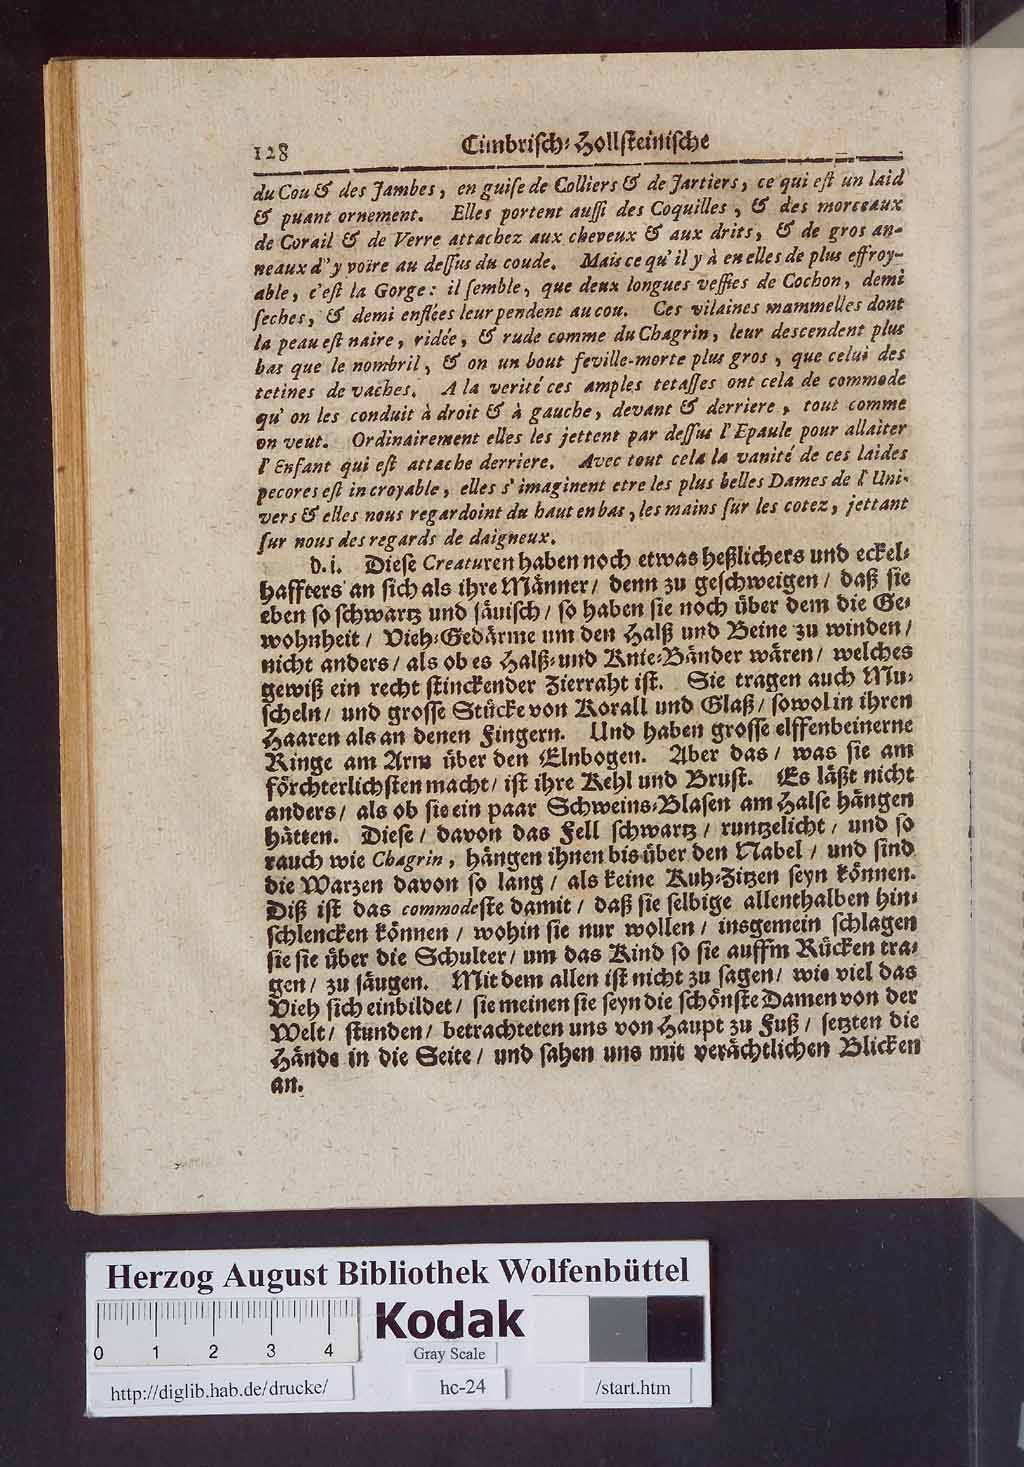 128 Cimbrisch-Hollsteinische
du Cou & des Jambes, en guiſe de Colliers & de Jartiers, ce qui eſt un laid
& puant ornement. Elles portent auſſi des Coquilles, & des morceaux
de Corail & de Verre attachez aux cheveux & aux drits, & de gros an-
neaux d'y voire au deſſus du coude. Mais ce qu'il y à en elles de plus effroy-
able, c'eſt la Gorge: il ſemble, que deux longues veſſies de Cochon, demi
ſeches, & demi enflées leur pendent au cou. Ces vilaines mammelles dont
la peau eſt naire, ridée, & rude comme du Chagrin, leur deſcendent plus
bas que le nombril, & on un bout feville-morte plus gros, que celui des
tetines de vaches. A la verité ces amples tetaſſes ont cela de commode
qu' on les conduit à droit & à gauche, devant & derriere, tout comme
on veut. Ordinairement elles les jettent par deſſus l'Epaule pour allaiter
l'Enfant qui eſt attache derriere. Avec tout cela la vanité de ces laides
pecores eſt incroyable, elles s'imaginent etre les plus belles Dames de l'Uni-
vers & elles nous regardoint du haut en bas, les mains ſur les cotez, jettant
ſur nous des regards de daigneux.
d. i. Dieſe Creaturen haben noch etwas heßlichers und eckel-
haffters an ſich als ihre Männer/ denn zu geſchweigen/ daß ſie
eben ſo ſchwartz und ſäuiſch/ ſo haben ſie noch über dem die Ge-
wohnheit/ Vieh-Gedärme um den Halß und Beine zu winden/
nicht anders/ als ob es Halß-und Knie-Bänder wären/ welches
gewiß ein recht ſtinckender Zierraht iſt. Sie tragen auch Mu-
ſcheln/ und groſſe Stücke von Korall und Glaß/ ſowol in ihren
Haaren als an denen Fingern. Und haben groſſe elffenbeinerne
Ringe am Arm über den Elnbogen. Aber das/ was ſie am
förchterlichſten macht/ iſt ihre Kehl und Bruſt. Es läßt nicht
anders/ als ob ſie ein paar Schweins-Blaſen am Halſe hängen
hätten. Dieſe/ davon das Fell ſchwartz/ runtzelicht/ und ſo
rauch wie Chagrin, hängen ihnen bis über den Nabel/ und ſind
die Warzen davon ſo lang/ als keine Kuh-Zitzen ſeyn können.
Diß iſt das commodeſte damit/ daß ſie ſelbige allenthalben hin-
ſchlencken können/ wohin ſie nur wollen/ insgemein ſchlagen
ſie ſie über die Schulter/ um das Kind ſo ſie auffm Rücken tra-
gen/ zu ſäugen. Mit dem allen iſt nicht zu ſagen/ wie viel das
Vieh ſich einbildet/ ſie meinen ſie ſeyn die ſchönſte Damen von der
Welt/ ſtunden/ betrachteten uns von Haupt zu Fuß/ ſetzten die
Hände in die Seite/ und ſahen uns mit verächtlichen Blicken
an.
Herzog August Bibliothek Wolfenbüttel
Kodak
0 1 2 3 4
Gray Scale
http://diglib.hab.de/drucke/ hc-24 /start.htm